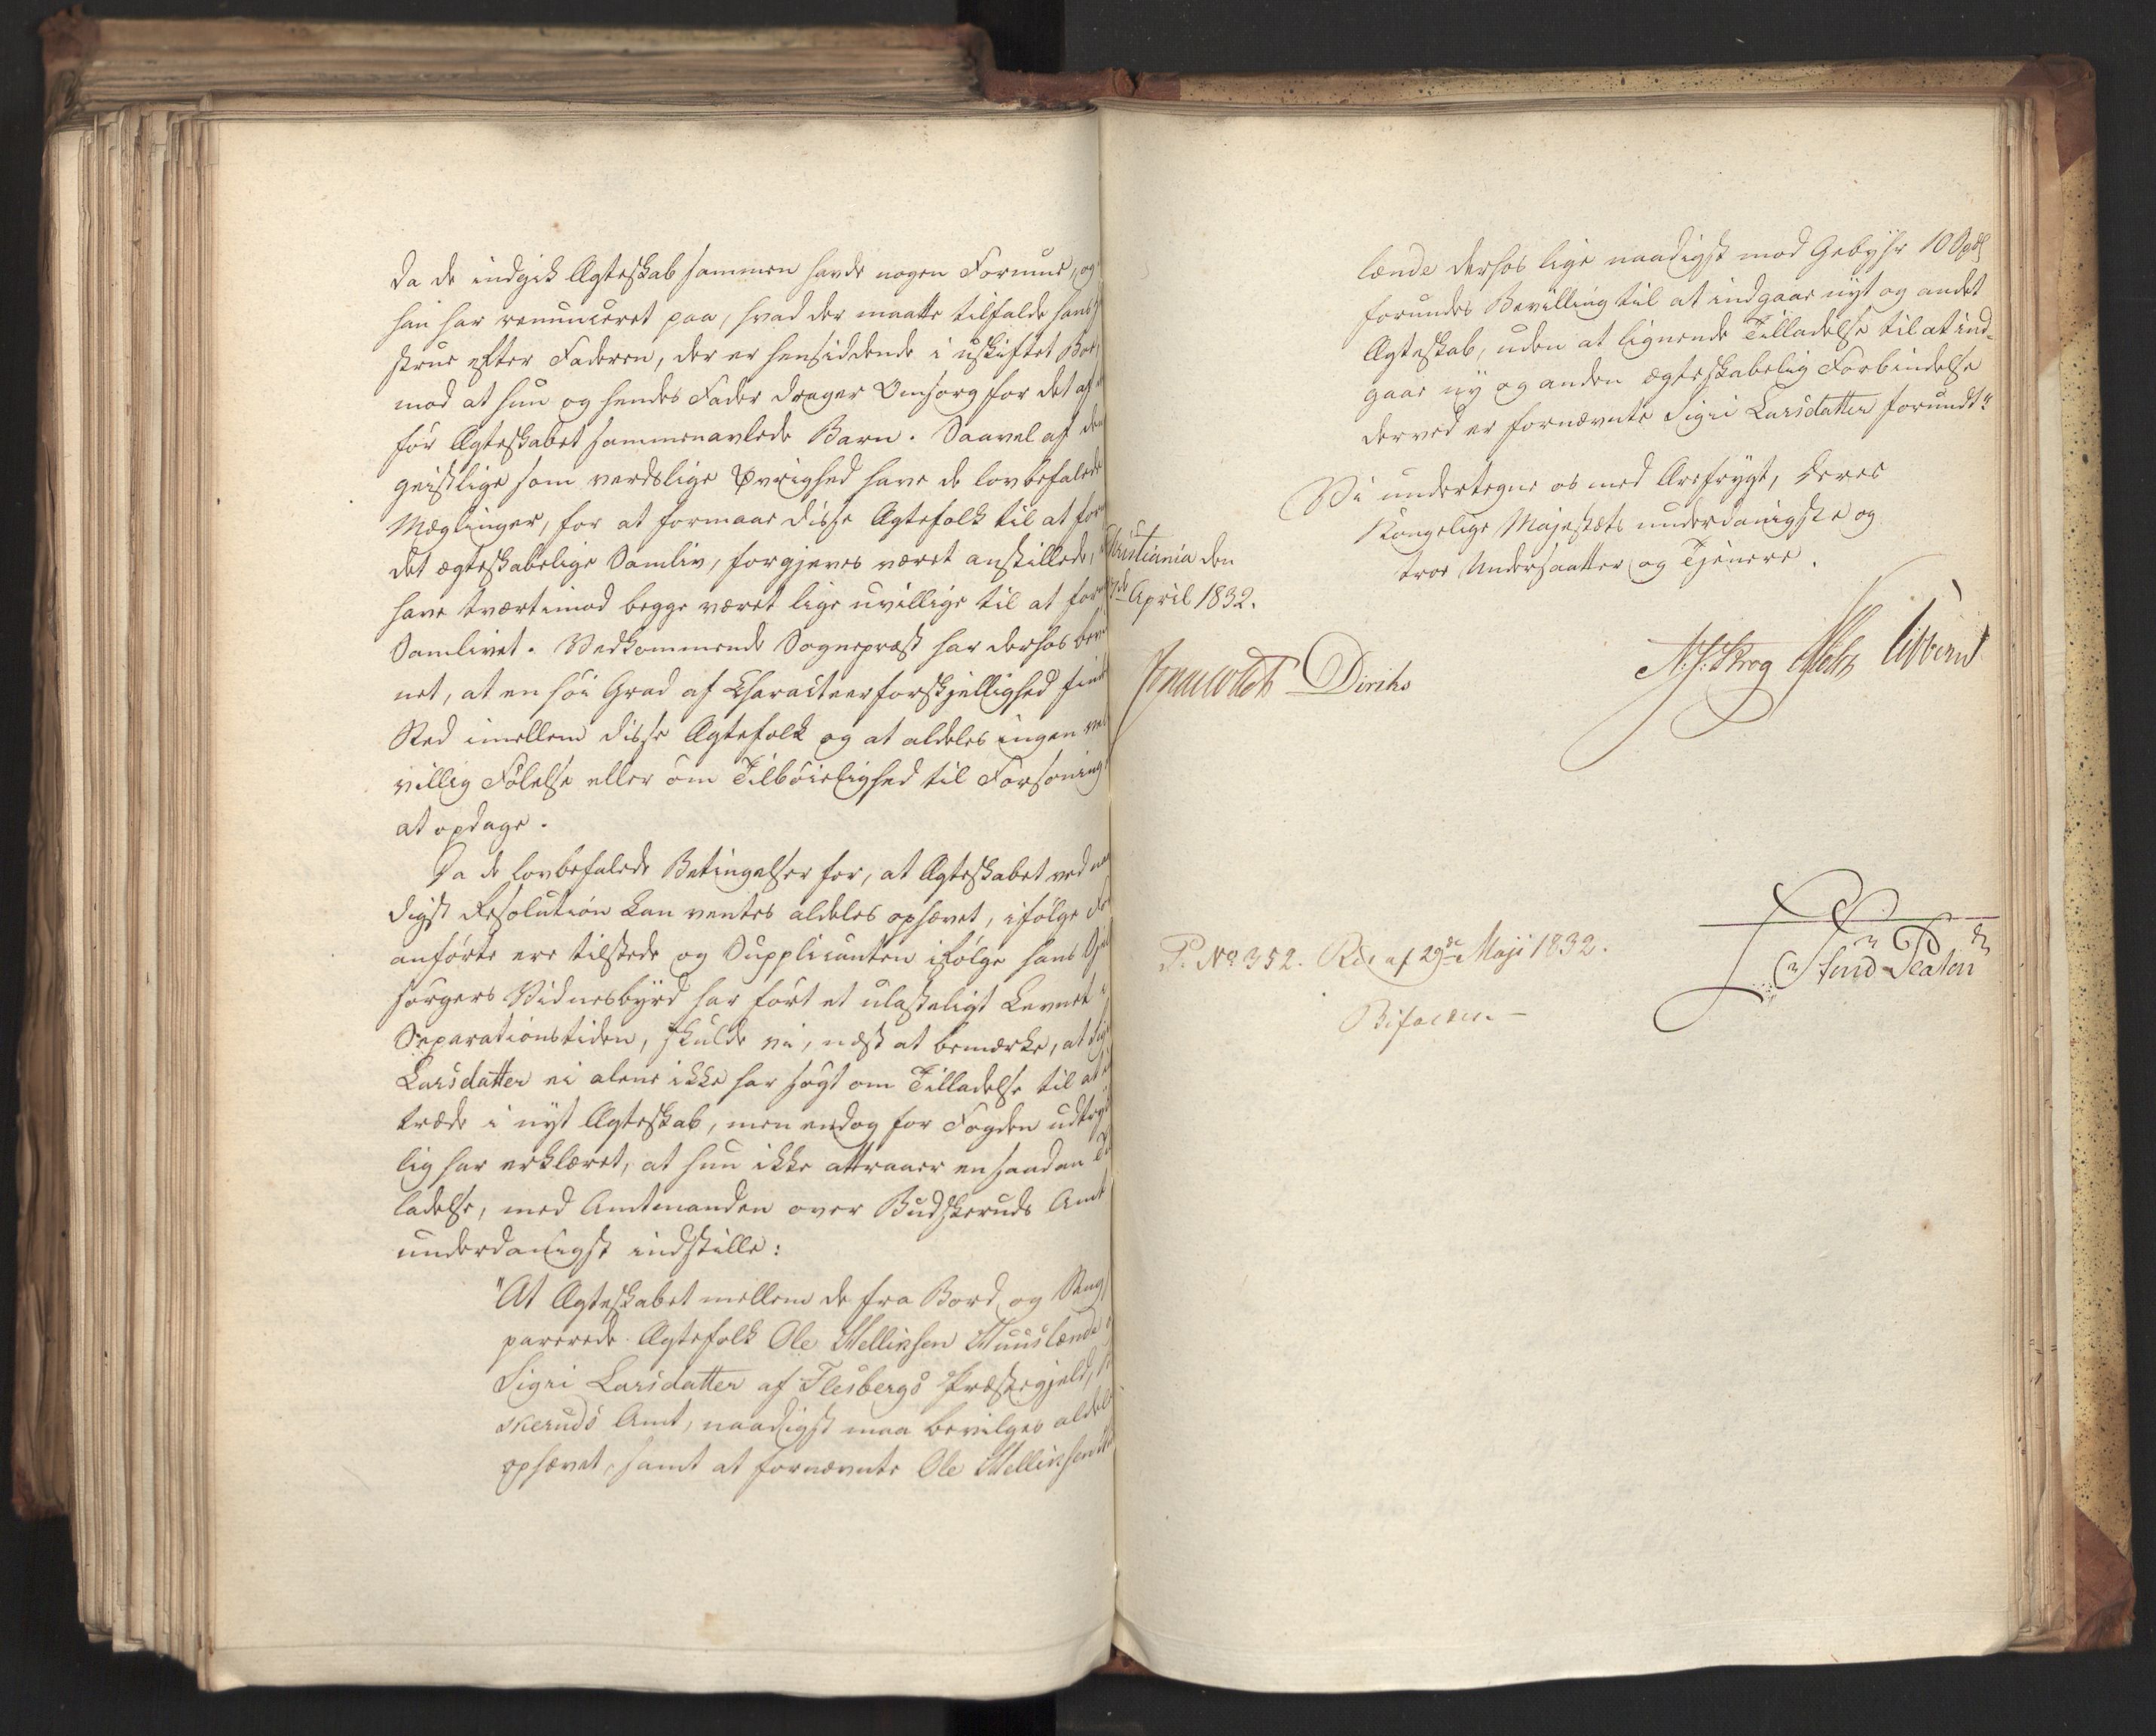 da de indgik Ægteskab sammen havde nogen Formue, og
han har renunceret paa, hvad der maatte tilfalde hans
strue efter Faderen, der er hensiddende i uskiftet Boe,
mod at hun og hendes Fader drager Omsorg for det af
før Ægteskabet sammenavlede Barn. Saavel af den
geistlige som verdslige Øvrighed have de lovbefalede
Mæglinger, for at formaae disse Ægtefolk til at for
det ægteskabelige Samliv, forgjeves været anstillede,
have tvertimod begge været lige uvillige til at for
Samlivet. Vedkommende Sognepræst har derhos bevid
net, at en høi Grad af Characteerforskjellighed find
Sted imellem disse Ægtefolk og at aldeles ingen vel
villig Følelse eller øm Tilbøielighed til Forsoning
at opdage.
Da de lovbefalede Betingelser for, at Ægteskabet ved naa
digst Resolution kan ventes aldeles ophævet, ifølge det
anførte ere tilstede og Supplicanten ifølge hans Sjæle
sørgers Vidnesbyrd har ført et ulasteligt Levnet i
Separationstiden, skulde vi, næst at bemærke, at Sigri
Larsdatter ei alene ikke har søgt om Tilladelse til at i
træde i nyt Ægteskab, men endog for Fogden udtryk
lig har erklæret, at hun ikke attraaer en saadan Til
ladelse, med Amtmanden over Budskeruds Amt
underdanigst indstille:
"At Ægteskabet mellem de fra Bord og Seng
parerede Ægtefolk Ole Mellivsen Muuslænde
Sigri Larsdatter af Flesbergs Præstegjeld,
skeruds Amt, naadigst maa bevilges aldeles
ophævet, samt at fornævnte Ole Mellivsen
lænde derhos lige naadigst mod Gebyhr 10 Spdl
forundes Bevilling til at indgaae nyt og andet
Ægteskab, uden at lignende Tilladelse til at ind-
gaae ny og anden ægteskabelig Forbindelse
derved er fornævnte Sigri Larsdatter forundt."
Vi undertegne os med Ærefrygt, Deres
Kongelige Majestæts underdanigste og
troe Undersaatter og Tjenere.
Christiania den
April 1832.
Diriks
N. J. Krog
P. No 352. Rde af 29de Maji 1832.
Bifaldes.